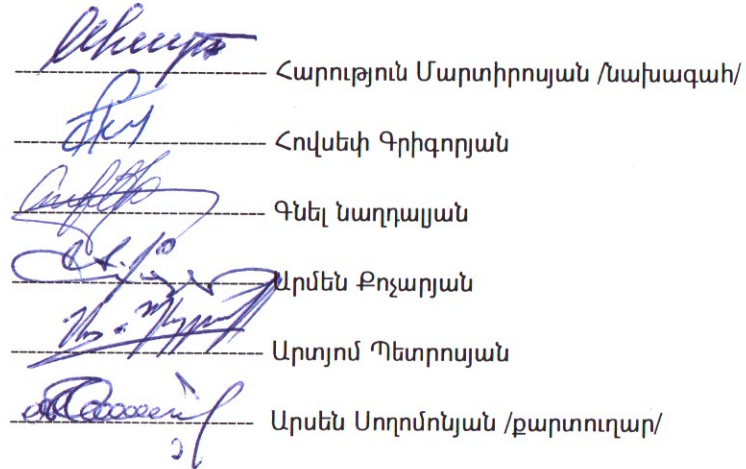 Հարություն Մարտիրոսյան /նախագահ/
Հովսեփ Գրիգորյան
Գնել նաղդալյան
Արմեն Քոչարյան
Արտյոմ Պետրոսյան
Արսեն Սողոմոնյան /քարտուղար/